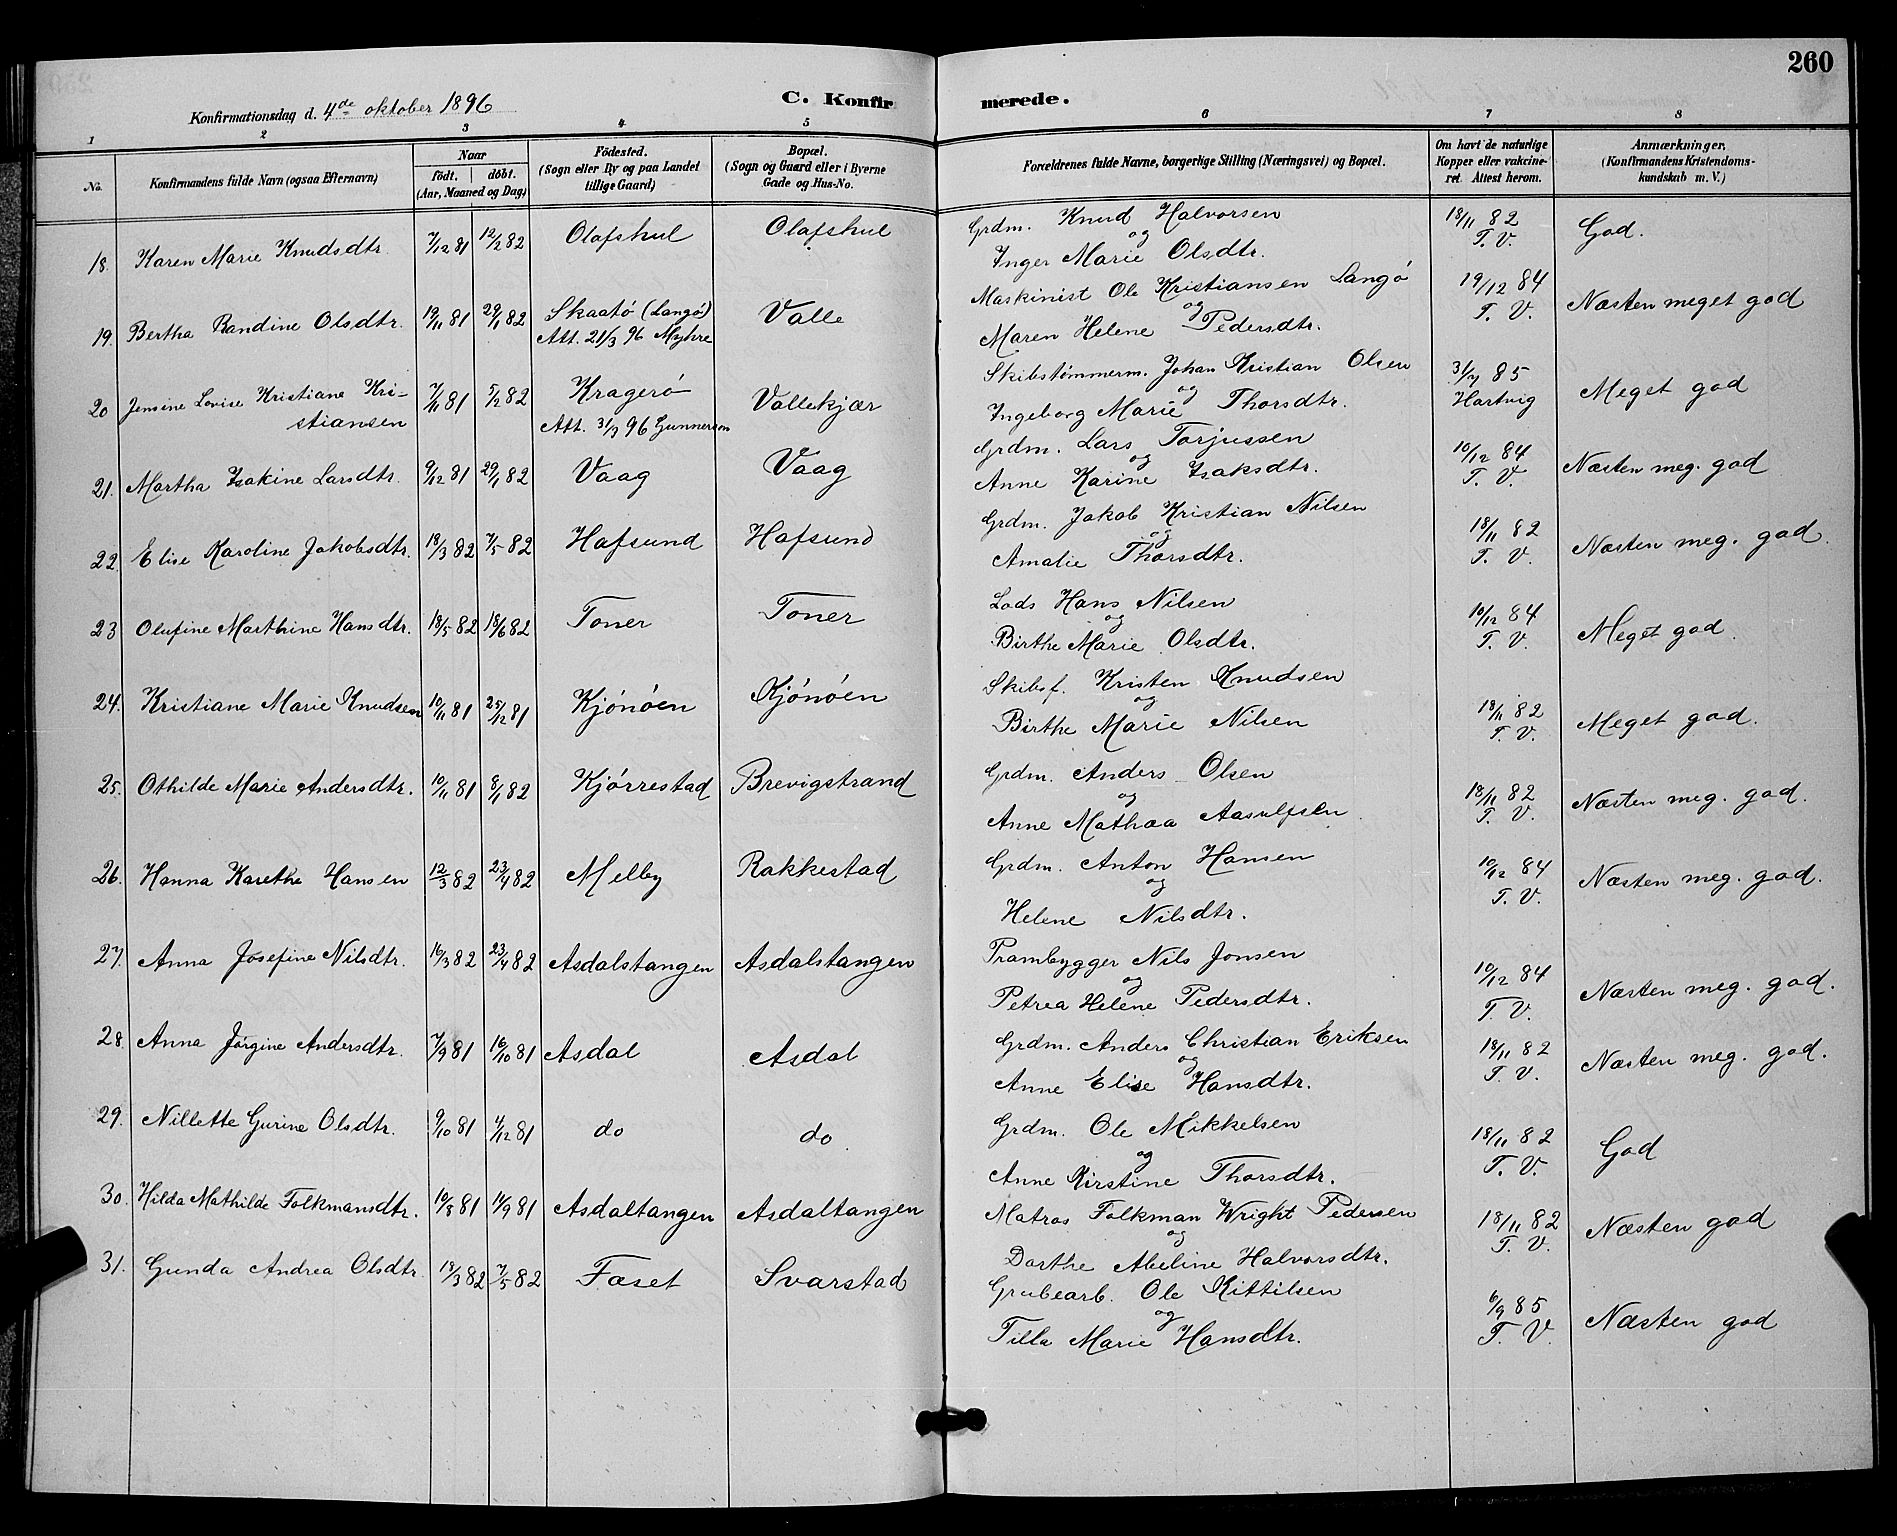 260
Konfirmationsdag d. 4de oktober 1896
C. Konfirmerede.
1 2 3 4 5 6 7 8
No. | Konfirmandens fulde Navn (ogsaa Efternavn) | Naar født. døbt. (Aar, Maaned og Dag) | Fødested. (Sogn eller By og paa Landet tillige Gaard) | Bopæl. (Sogn og Gaard eller i Byerne Gade og Hus-No. | Forældrenes fulde Navne, borgerlige Stilling (Næringsvei) og Bopæl. | Om havt de naturlige Kopper eller vakcineret. Attest herom. | Anmærkninger. (Konfirmandens Kristendomskundskab m. V.)
18. Karen Marie Knudsdtr. 7/12 81 12/2 82 Olafshul Olafshul Grdm. Knud Halvorsen 18/11 82 God.
og T. V.
Inger Marie Olsdtr.
19. Bertha Randine Olsdtr. 19/11 81 29/1 82 Skaatø (Langø) Valle Maskinist Ole Kristiansen Langø 19/12 84 Næsten meget god
Att. 21/3 96 Myhre og T. V.
Maren Helene Pedersdtr.
20 Jensine Lovise Kristiane Kri- 7/11 81 5/2 82 Kragerø Vallekjær Skibstømmerm. Johan Kristian Olsen 31/7 85 Meget god
stiansen Att. 31/3 96 Gunnersen og Hartvig
Ingeborg Marie Thorsdtr.
21. Martha Isakine Larsdtr. 9/12 81 29/1 82 Vaag Vaag Grdm. Lars Torjussen 10/12 84 Næsten meg. god
og T. V.
Anne Karine Isaksdtr.
22. Elise Karoline Jakobsdtr. 18/3 82 7/5 82 Hafsund Hafsund Grdm. Jakob Kristian Nilsen 18/11 82 Næsten meg. god.
og T. V.
Amalie Thorsdtr.
23 Olufine Marthine Hansdtr. 18/5 82 18/6 82 Toner Toner Lods Hans Nilsen 10/12 84 Meget god.
og T. V.
Birthe Marie Olsdtr.
24. Kristiane Marie Knudsen 10/11 81 25/12 81 Kjønøen Kjønøen Skibsf. Kristen Knudsen 18/11 82 Meget god.
og T. V.
Birthe Marie Nilsen
25. Othilde Marie Andersdtr. 10/11 81 8/1 82 Kjørrestad Brevigstrand Grdm. Anders Olsen 18/11 82 Næsten meg. god.
og T. V.
Anne Mathæa Aasulfsen
26. Hanna Karethe Hansen 12/3 82 23/4 82 Melby Rakkestad Grdm. Anton Hansen 10/12 84 Næsten meg. god.
og T. V.
Helene Nilsdtr.
27. Anna Josefine Nilsdtr. 16/3 82 23/4 82 Asdalstangen Asdalstangen Prambygger Nils Jonsen 10/12 84 Næsten meg. god.
og T. V.
Petrea Helene Pedersdtr.
28. Anna Jørgine Andersdtr. 7/9 81 16/10 81 Asdal Asdal Grdm. Anders Christian Eriksen 18/11 82 Næsten meg. god.
og T. V.
Anne Elise Hansdtr.
29. Nillette Gurine Olsdtr. 9/10 81 4/12 81 do do Grdm. Ole Mikkelsen 18/11 82 God
og T. V.
Anne Kirstine Thorsdtr.
30. Hilda Mathilde Folkmansdtr. 10/8 81 11/9 81 Asdaltangen Asdaltangen Matros Folkman Wright Pedersen 18/11 82 Næsten god
og T. V.
Dorthe Abeline Halvorsdtr.
31. Gunda Andrea Olsdtr. 13/3 82 7/5 82 Foset Svarstad Grubearb. Ole Kittilsen 6/9 85 Næsten god
og T. V.
Tilla Marie Hansdtr.